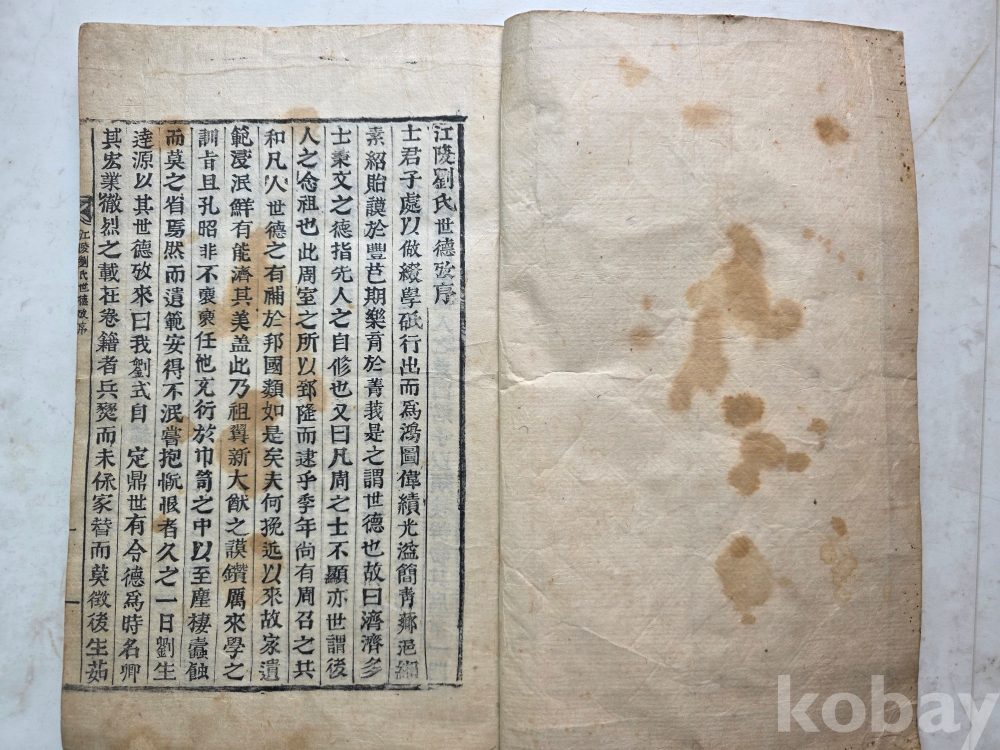 江陵劉氏世德攷序
士君子處以做綴學砥行出而爲鴻圖偉績光溢簡靑鄰邑緗
素紹貽謨於豐芑期樂育於菁莪是之謂世德也故曰濟濟多
士秉文之德指先人之自修也又曰凡周之士不顯亦世謂後
人之念祖也此周室之所以郅隆而逮乎季年尙有周召之共
和凡人世德之有補於邦國類如是矣夫何挽近以來故家遺
範寖泯鮮有能濟其美盖此乃祖翼新大猷之謨鑽厲來學之
訓旹且孔昭非不褎褎任他充衍於巾笥之中以至塵棲蠹蝕
而莫之省焉然而遺範安得不泯嘗抱慨恨者久之一日劉生
達源以其世德攷來曰我劉式自 定鼎世有令德爲時名卿
其宏業徽烈之載在卷籍者兵燹而未係家替而莫徵後生茹
江陵劉氏世德攷序
kobay